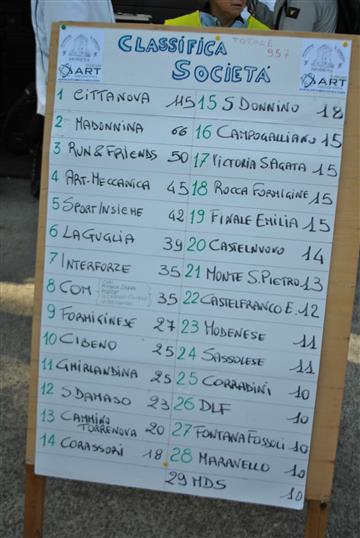 CLASSIFICA
TOTALE 957
SOCIETÁ
ART
ART
1 CITTANOVA 115
2 MADONNINA 66
3 RUN&FRIENDS 50
4 ART-MECCANICA 45
5 SPORTINSIEME 42
6 LAGUGLIA 39
7 INTERFORZE 35
8 COM 35
9 FORMIGINESE 27
10 CIBENO 25
11 GHIRLANDINA 25
12 S.DAMASO 23
13 CAMMINO TORRENOVA 20
14 CORASSORI 18
15 S DONNINO 18
16 CAMPOGALLIANO 15
17 VICTORIA SAGATA 15
18 ROCCA FORMIGINE 15
19 FINALE EMILIA 15
20 CASTELNUOVO 14
21 MONTE S.PIETRO 13
22 CASTELFRANCO E. 12
23 MODENESE 11
24 SASSOLESE 11
25 CORRADINI 10
26 DLF 10
27 FONTANA FOSSOLI 10
28 MARAVELLO 10
29 MDS 10